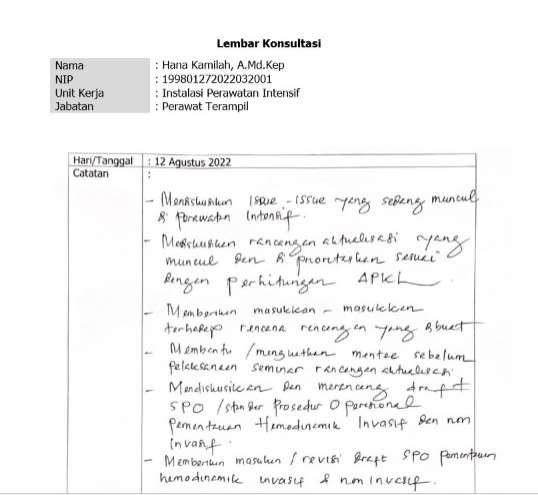 Lembar Konsultasi
Nama : Hana Kamilah, A.Md.Kep
NIP : 199801272022032001
Unit Kerja : Instalasi Perawatan Intensif
Jabatan : Perawat Terampil
Hari/Tanggal : 12 Agustus 2022
Catatan :
- Mendiskusikan issue - issue yang sedang muncul
di Perawatan Intensif.
- Mendiskusikan rancangan aktualisasi yang
muncul dan di prioritaskan sesuai
dengan perhitungan APKL.
- Memberikan masukkan - masukkan
terhadap rencana rancangan yang dibuat
- Membantu / menguatkan mentee sebelum
pelaksanaan seminar rancangan aktualisasi.
- Mendiskusikan dan merancang draft
SPO / standar Prosedur Operasional
Pemantauan Hemodinamik Invasif dan non
Invasif.
- Memberikan masukan / revisi draft SPO Pemantauan
hemodinamik invasif & non invasif.